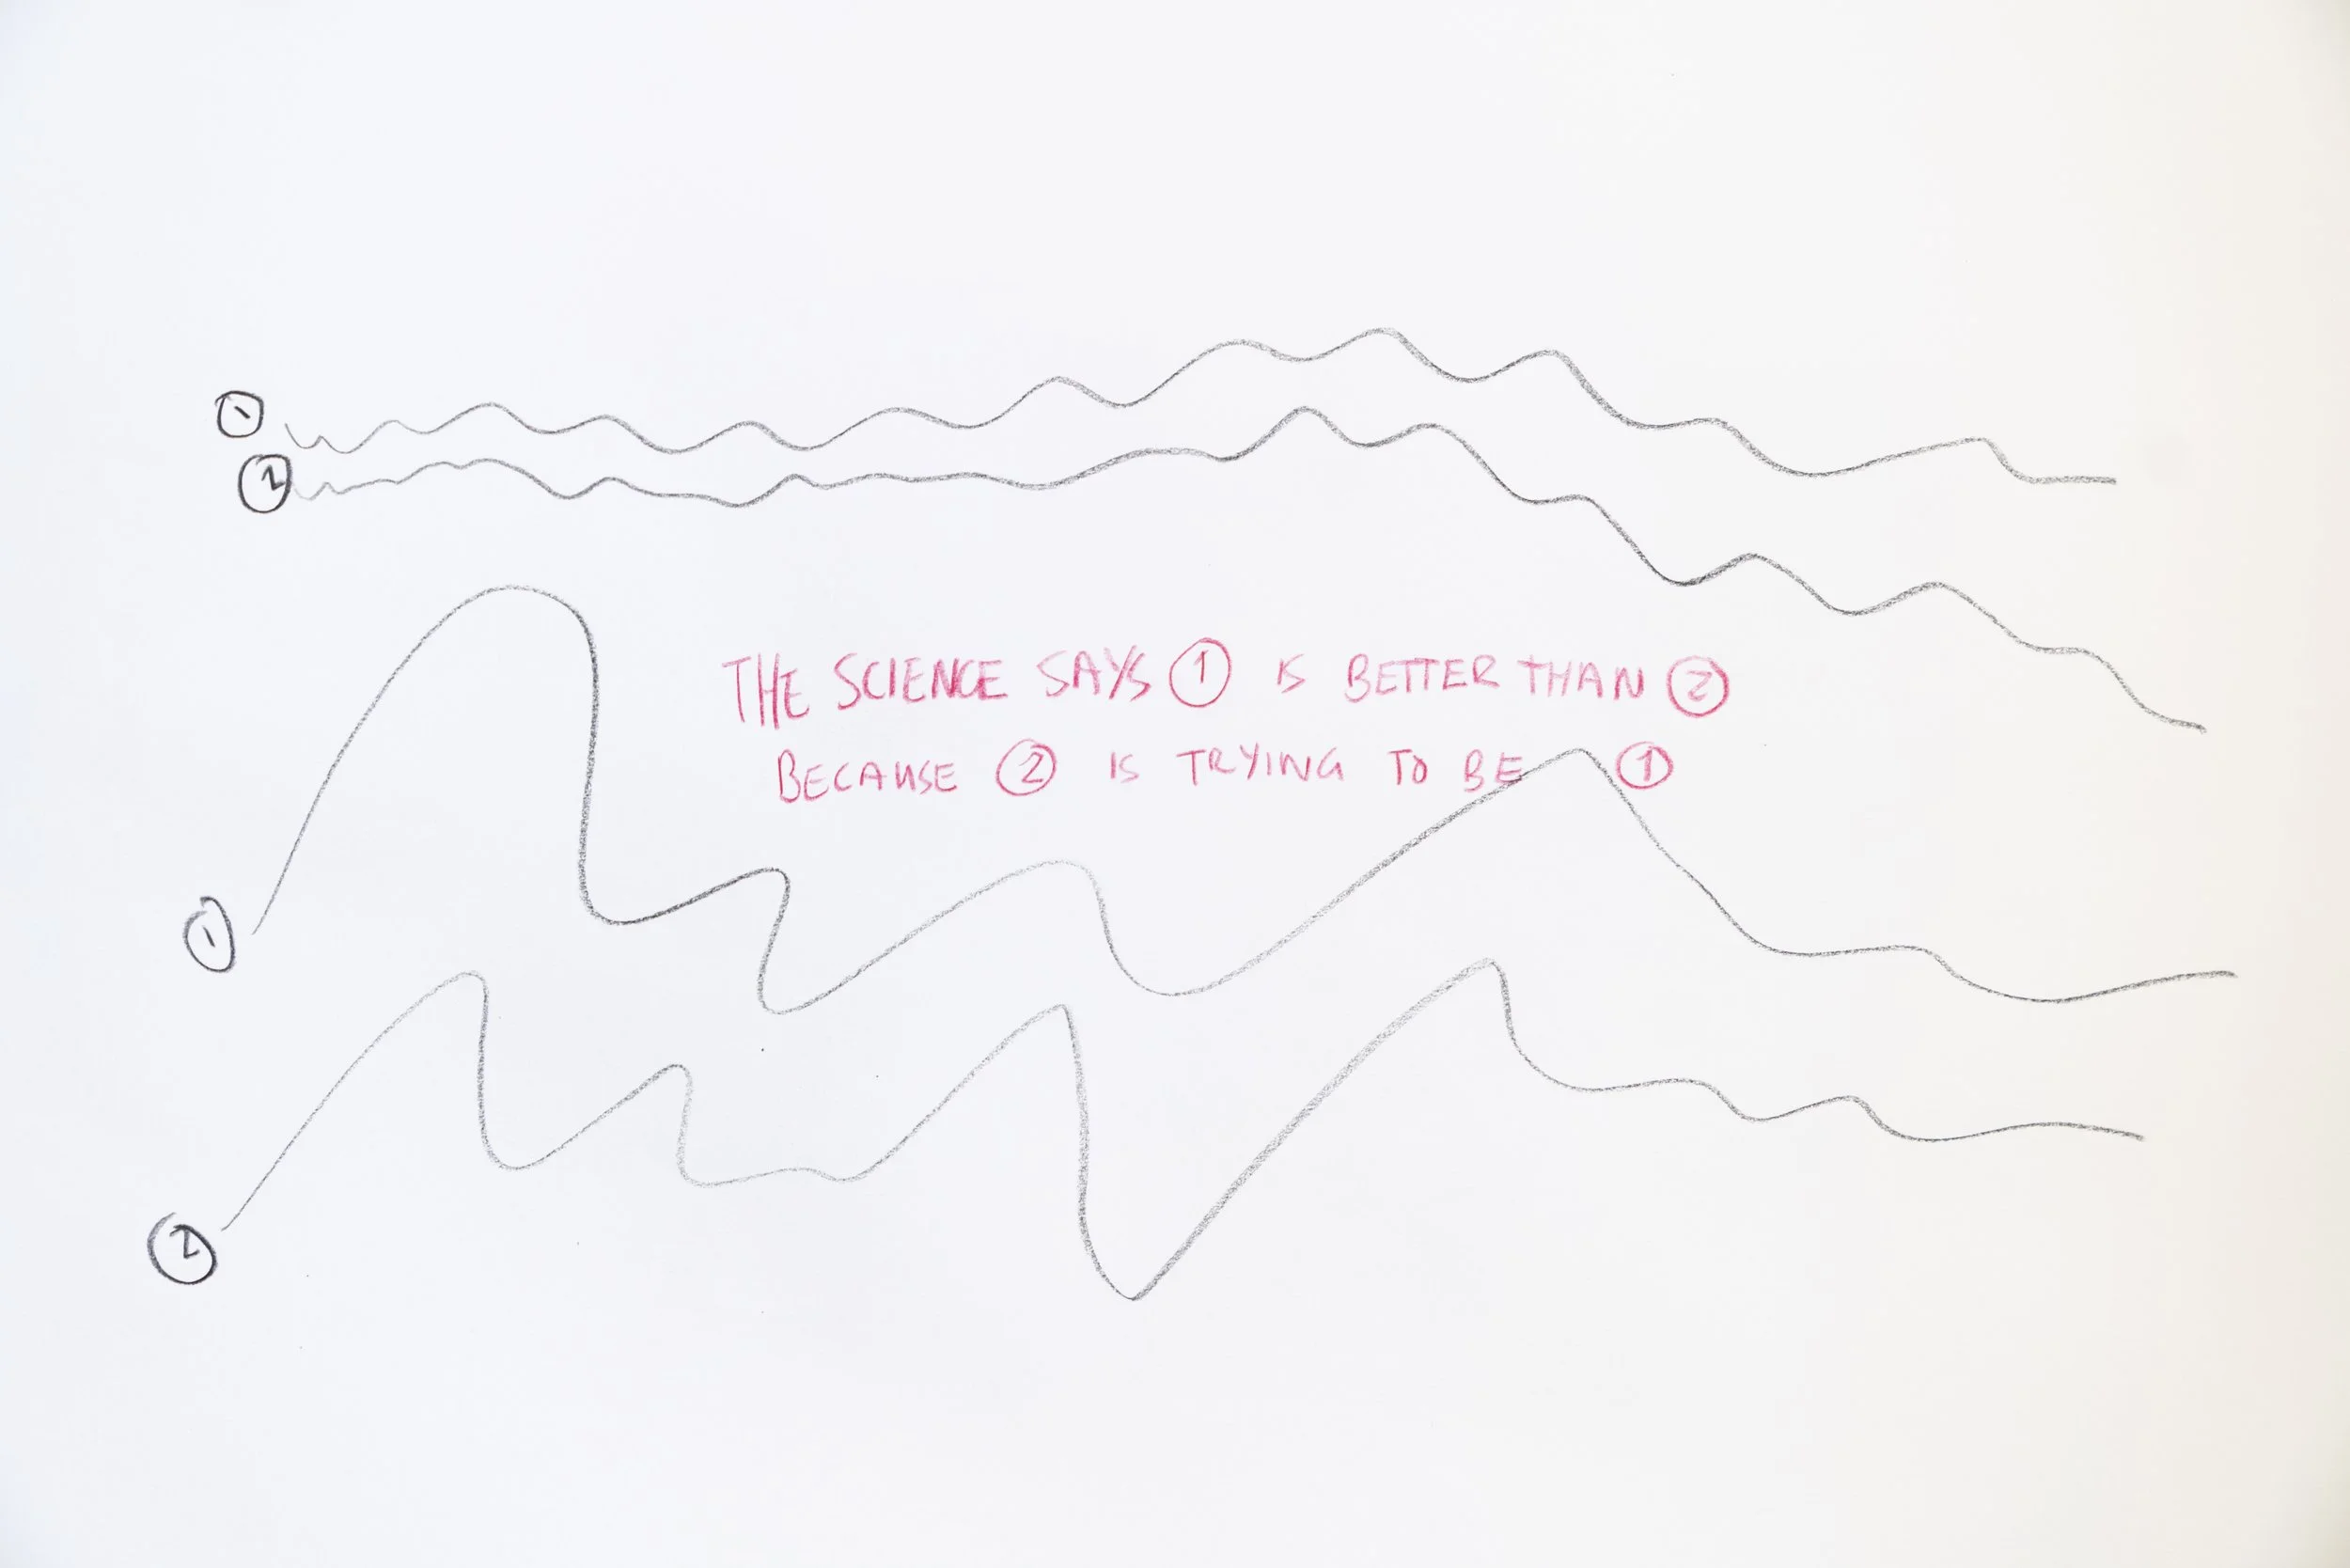 ①
②
THE SCIENCE SAYS ① IS BETTER THAN ②
BECAUSE ② IS TRYING TO BE ①
①
②